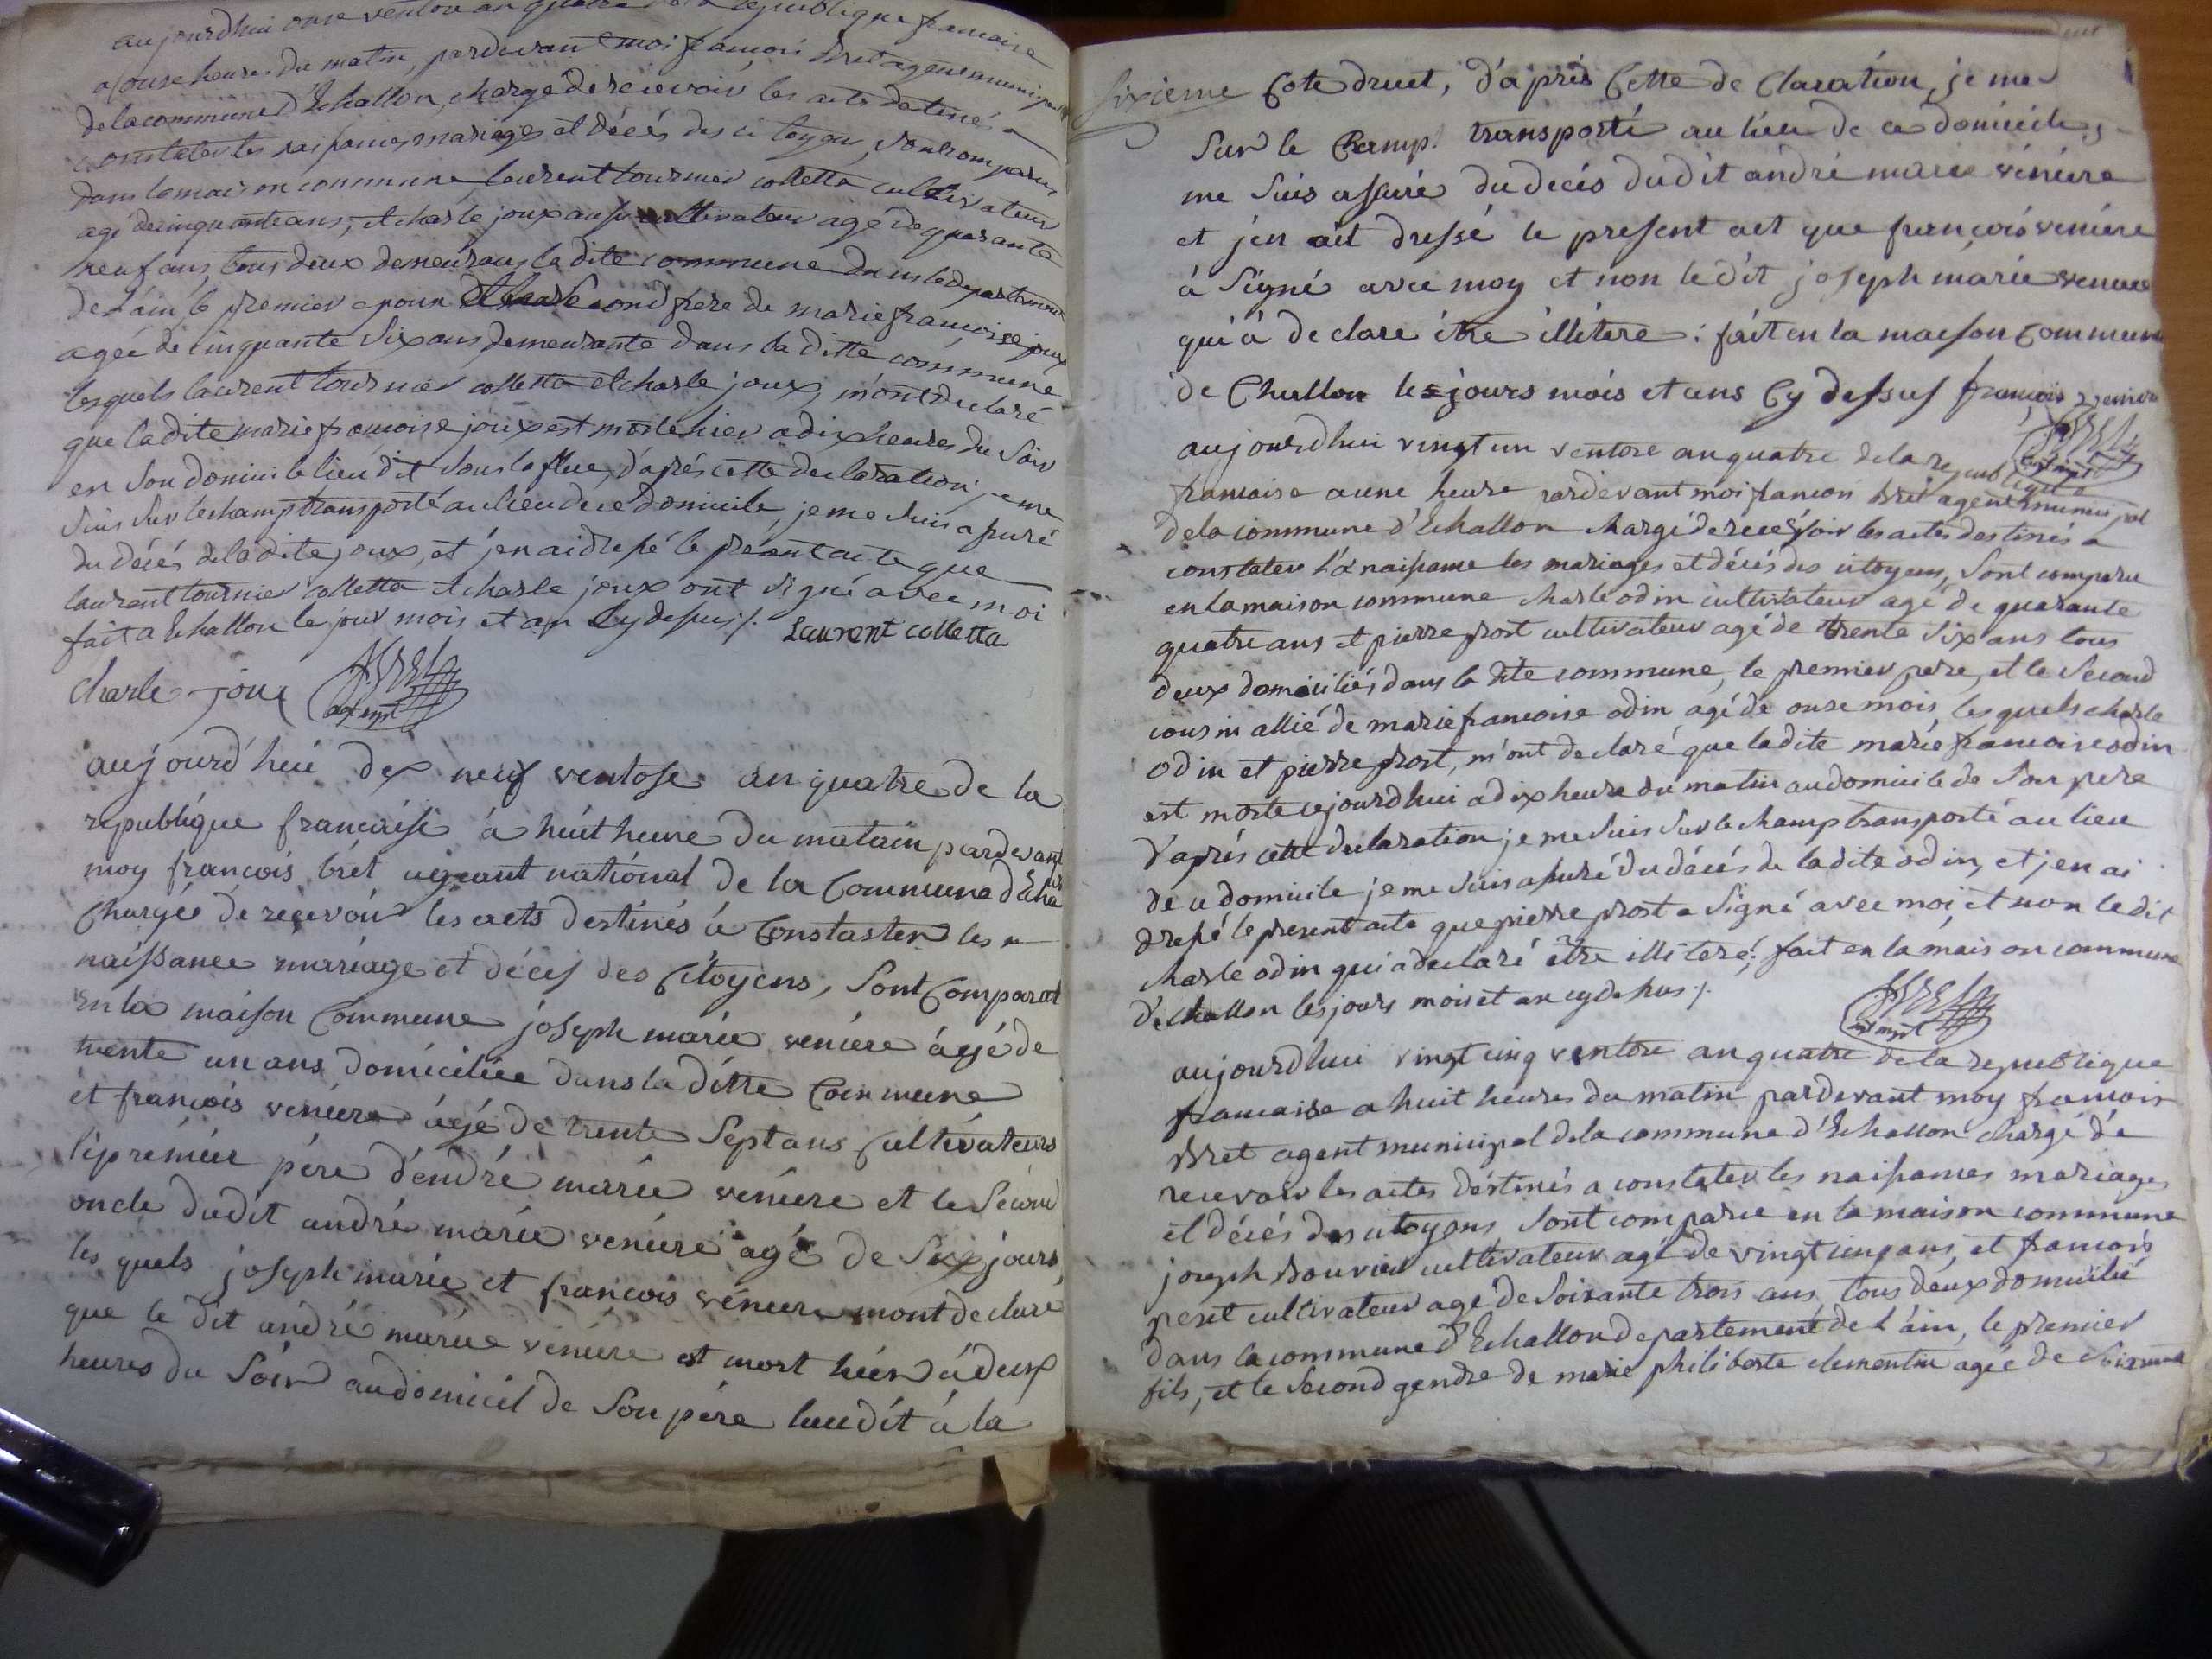 aujourdhui onze ventose an quatre de la republique francaise
a onze heures du matin, pardevant moi francois Bret agent municipal
de la commune d'Echallon, chargé de recevoir les acte destinés a
constater les naissances, mariages et décés des citoyens, sont comparus
dans la maison commune, laurent tournier colletta cultivateur
agé de cinquante ans, et charle joux aussi cultivateur agé de quarante
neuf ans, tous deux demeurans la dite commune dans le departement
de L'ain, le premier epoux et le second frere de marie francoise joux
agée de cinquante six ans demeurante dans la ditte commune
lesquels laurent tournier colletta et charle joux, m'ont declaré
que la dite marie francoise joux est morte hier a dix heures du soir
en son domicile lieu dit sous la flue, d'aprés cette declaration je me
suis sur le champ transporté au lieu de ce domicile, je me suis assuré
du décés de la dite joux, et j'en ai dressé le présent acte que
laurent tournier colletta et charle joux ont signé avec moi
fait a Echallon le jour mois et an cy dessus ./. Laurent colletta
charle joux Bret agt mpl
aujourd'hui dix neuf ventose an quatre de la
republique francaise à huit heure du matain pardevant
moy francois bret ageant national de la Commune d'Echa
Chargée de recevoir les acts destinés à Constaster les
naissance mariage et décés des Citoyens, sont Comparut
en la maison Commune joseph marie veniere âgé de
trente un ans domiciliée dans la ditte Commune
et francois veniere âgé de trente Sept ans Cultivateurs
le premier pére d'endré marie veniere et le Second
oncle dudit andré marie veniere agé de Six jours
les quels joseph marie et francois veniere m'ont declaré
que le dit andré marie veniere est mort hier à deux
heures du Soir au domicil de Son pére lieu dit à la
Sixieme Cote druet, d'aprés Cette de Claration, je me
Sur le Champ transporté au lieu de ce domicile, je
me suis assuré du décés dudit andré marie véniere
et j'en ait dressé le present act que francois veniere
à Signé avec moy et non le dit joseph marie veniere
qui à declare être illitere : fait en la maison Commune
de Challon les jours mois et ans Cy dessus francois veniere
Bret agt mpl
aujourdhui vingt un ventose an quatre de la republique
francaise a une heure pardevant moi francois Bret agent municipal
de la commune d'Echallon chargé de recevoir les actes destinés a
constater la naissance les mariages et décés des citoyens, sont comparu
en la maison commune charle odin cultivateur agé de quarante
quatre ans et pierre prost cultivateur agé de trente six ans tous
deux domiciliés dans la dite commune, le premier pere, et le second
cousin allié de marie francoise odin agé de onze mois, lesquels charle
odin et pierre prost, m'ont declaré que la dite marie francoise odin
est morte cejourdhui a dix heure du matin au domicile de son pere
d'aprés cette declaration je me suis sur le champ transporté au lieu
de ce domicile je me suis assuré du décés de la dite odin, et j'en ai
dressé le present acte que pierre prost a signé avec moi, et non le dit
charle odin qui a declaré être illiteré; fait en la maison commune
d'echallon les jours mois et an cy dessus ./. Bret agt mpl
aujourdhui vingt cinq ventose an quatre de la republique
francaise a huit heures du matin pardevant moy francois
Bret agent municipal de la commune d'Echallon chargé de
recevoir les actes déstinés a constater les naissances mariages
et décés des citoyens sont comparu en la maison commune
joseph Bouvier cultivateur agé de vingt cinq ans, et francois
peret cultivateur agé de soixante trois ans, tous deux domicilié
dans la commune d'Echallon departement de L'ain, le premier
fils, et le second gendre de marie philiberte clementin agée de soixante